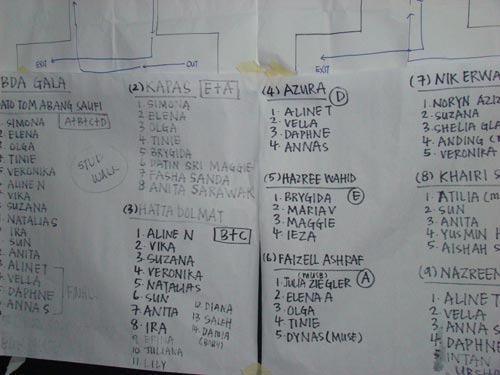 EXIT
OUT
BDA GALA
ATO TOM ABANG SAUFI
SIMONA
A+B+C+D
ELENA
OLGA
TINIE
VERONIKA
ALINE N
VIKA
SUZANA
NATALIAS
IRA
SUN
ANITA
ALINE T
VELLA
DAPHNE
ANNAS
STUD
WALK
(2) KAPAS E+A
1. SIMONA
2 ELENA
3 OLGA
4 TINIE
5 BRYGIDA
6 DATIN SRI MAGGIE
7 FASHA SANDA
8 ANITA SARAWAK
(3) HATTA DOLMAT
B+C
1. ALINE N
2. VIKA
3. SUZANA
4. VERONIKA
5 NATALIAS
6. SUN
7 ANITA
8. IRA
10 JULIANA
11 LILY
12. DIANA
13 SALEH
14. DAMIA
(BABY)
EXIT
(4) AZURA
D
1. ALINE T
2. VELLA
3. DAPHNE
4. ANNAS
(5) HAZREE WAHID
E
1. BRYGIDA
2 MARIA V
3. MAGGIE
4. IEZA
(6) FAIZELL ASHRAF
A
(MUSE)
1. JULIA ZIEGLER
2. ELENA A
3. OLGA
4. TINIE
5. DYNAS (MUSE)
(7) NIK ERWA
1. NORYN AZIZ
2. SUZANA
3. SHELIA GLA
4. ANDING (M
5. VERONIKA
(8) KHAIRI S
1. ATILIA (M
2. SUN
3. ANITA
4. YUSMIN H
5. AISHAH S
(9) NAZREEN
1. ALINE T
2. VELLA
3. ANNA S
4. DAPHNE
5. INTAN